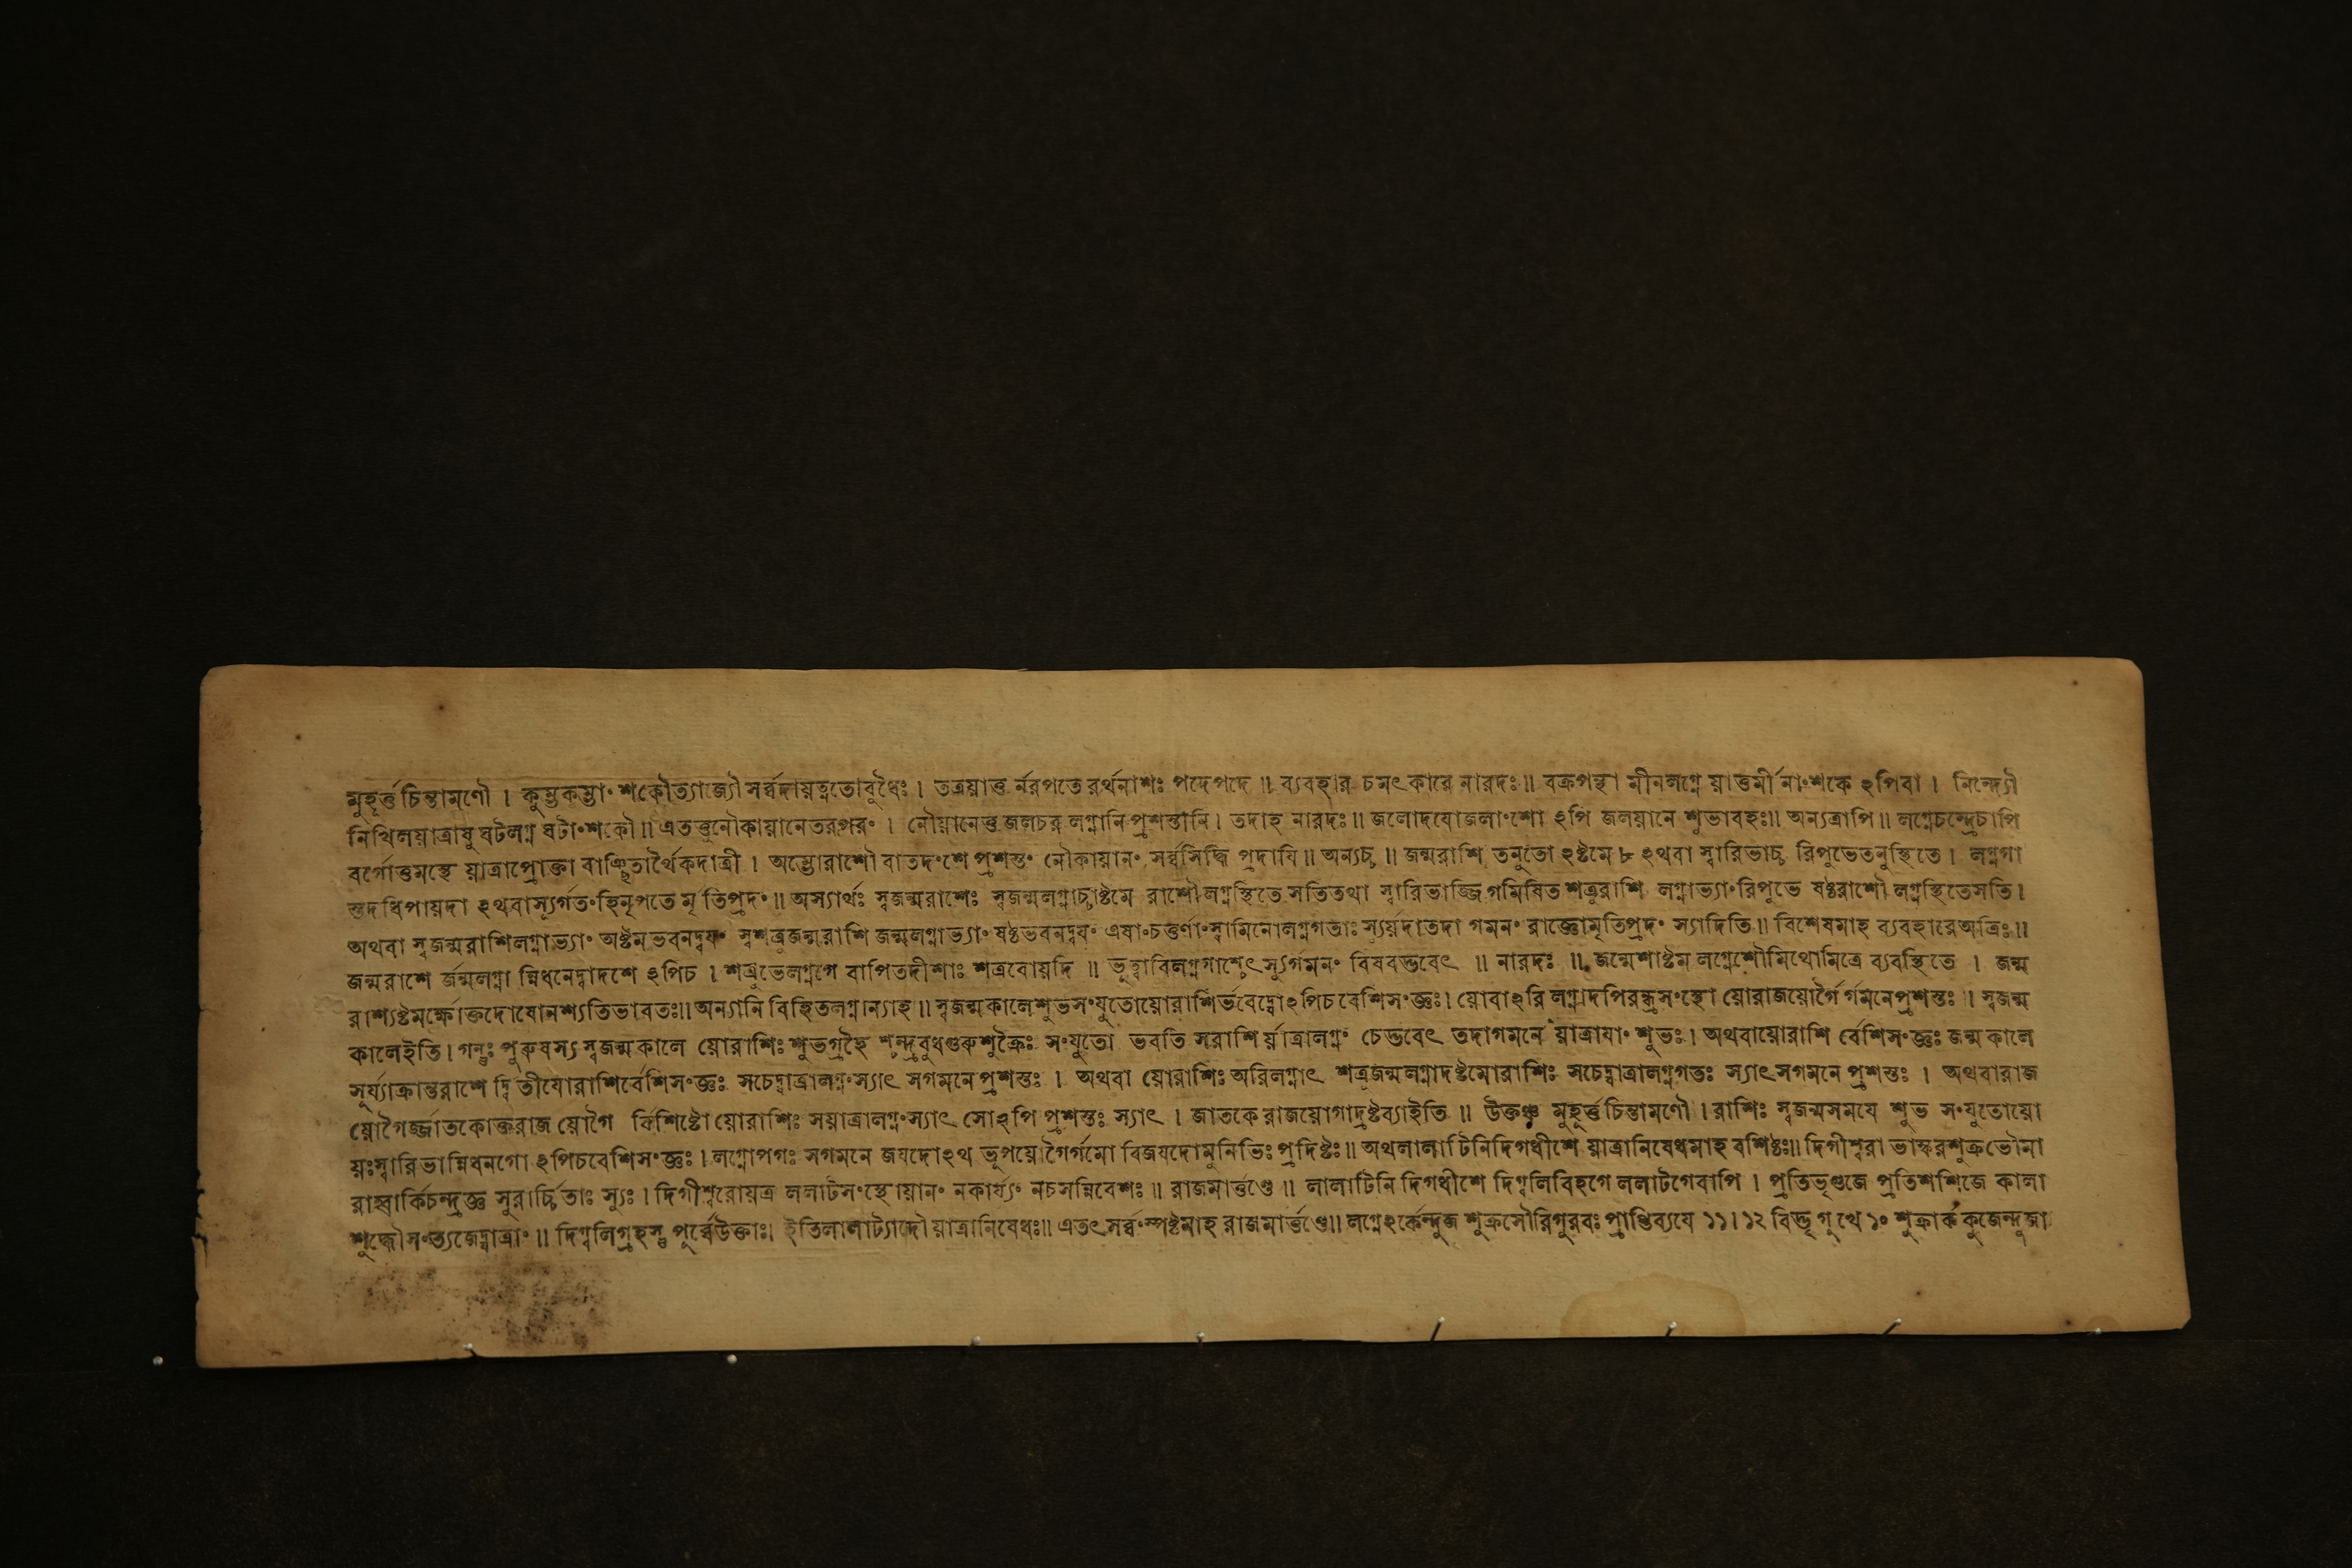 মুহূর্ত্তচিন্তামণৌ । কুম্ভকম্ভাংশকৌত্যাজ্যৌ সর্ব্বদায়ত্নতোবুধৈঃ । তত্রয়াত্ত র্নরপতে রর্থনাশঃ পদেপদে ॥ ব্যবহার চমৎকারে নারদঃ ॥ বক্রপন্থা মীনলগ্নে য়াত্তমীনাংশকে ঽপিবা । নিন্দ্যৌ
নিখিলয়াত্রাষু ঘটলগ্ন ঘটাংশকৌ ॥ এতত্তুনৌকায়ানেতরপরং । নৌয়ানেত্ত জলচর লগ্নানি প্রশস্তানি । তদাহ নারদঃ ॥ জলোদযোজলাংশো ঽপি জলয়ানে শুভাবহঃ ॥ অন্যত্রাপি ॥ লগ্নেচন্দ্রেচাপি
বর্গোত্তমস্থে য়াত্রাপ্রোক্তা বাঞ্ছিতার্থৈকদাত্রী । অম্ভোরাশৌ বাতদংশে প্রশস্তং নৌকায়ানং সর্ব্বসিদ্ধি প্রদাযি ॥ অন্যচ্চ ॥ জন্মরাশি তনুতো ঽষ্টমে ৮ ঽথবা স্বারিভাচ্চ রিপুভেতনুস্থিতে । লগ্নগা
স্তদধিপায়দা ঽথবাস্যুর্গতংহিনৃপতে র্মৃতিপ্রদং ॥ অস্যার্থঃ স্বজন্মরাশেঃ স্বজন্মলগ্নাচ্চাষ্টমে রাশৌ লগ্নস্থিতে সতিতথা স্বারিভাজ্জিগমিষিত শত্রুরাশি লগ্নাভ্যাং রিপুভে ষষ্ঠরাশৌ লগ্নস্থিতেসতি ।
অথবা স্বজন্মরাশিলগ্নাভ্যাং অষ্টমভবনদ্বযং স্বশত্রুজন্মরাশি জন্মলগ্নাভ্যাং ষষ্ঠভবনদ্বযং এষাংচত্তুর্ণাংস্বামিনোলগ্নগতাঃ স্যুর্য়দাতদা গমনং রাজ্ঞোমৃতিপ্রদং স্যাদিতি ॥ বিশেষমাহ ব্যবহারেঅত্রিঃ ॥
জন্মরাশে র্জন্মলগ্না ন্নিধনেদ্বাদশে ঽপিচ । শত্রুভেলগ্নগে বাপিতদীশাঃ শত্রবোয়দি ॥ ভুত্বাবিলগ্নগাশ্চেৎস্যুর্গমনং বিষবদ্ভবেৎ ॥ নারদঃ ॥ জন্মেশাষ্টম লগ্নেশৌমিথোমিত্রে ব্যবস্থিতে । জন্ম
রাশ্যষ্টমর্ক্ষোক্তদোষোনশ্যতিভাবতঃ ॥ অন্যানি বিহিতলগ্নান্যাহ ॥ স্বজন্মকালেশুভসংযুতোয়োরাশির্ভবেদ্বোঽপিচবেশিসংজ্ঞঃ । য়োবাঽরি লগ্নাদপিরন্ধ্রসংস্থো য়োরাজয়োগৈর্গমনেপ্রশস্তঃ ॥ স্বজন্ম
কালেইতি । গন্তুঃ পুরুষস্য স্বজন্মকালে য়োরাশিঃ শুভগ্রহৈ শ্চন্দ্রবুধগুরুশুক্রৈঃ সংযুতো ভবতি সরাশির্য়াত্রালগ্নং চেদ্ভবেৎ তদাগমনে য়াত্রাযাং শুভঃ । অথবায়োরাশি র্বেশিসংজ্ঞঃ জন্মকালে
সূর্য্যাক্রান্তরাশে দ্বিতীযোরাশির্বেশিসংজ্ঞঃ সচেদ্যাত্রালগ্নংস্যাৎ সগমনে প্রশস্তঃ । অথবা য়োরাশিঃ অরিলগ্নাৎ শত্রুজন্মলগ্নাদষ্টমোরাশিঃ সচেদ্যাত্রালগ্নগতঃ স্যাৎসগমনে প্রশস্তঃ । অথবারাজ
য়োগৈর্জ্জাতকোক্তরাজ য়োগৈ র্বিশিষ্টো য়োরাশিঃ সয়াত্রালগ্নংস্যাৎ সোঽপি প্রশস্তঃ স্যাৎ । জাতকে রাজয়োগাদ্রষ্টব্যাইতি ॥ উক্তঞ্চ মুহূর্ত্তচিন্তামণৌ । রাশিঃ স্বজন্মসময়ে শুভ সংযুতোয়ো
য়ঃস্বারিভান্নিধনগো ঽপিচবেশিসংজ্ঞঃ । লগ্নোপগঃ সগমনে জযদোঽথ ভূপয়োগৈর্গমো বিজযদোমুনিভিঃ প্রদিষ্টঃ ॥ অথলালাটিনিদিগধীশে য়াত্রানিষেধমাহ বশিষ্ঠঃ ॥ দিগীশ্বরা ভাস্করশুক্রভৌমা
রাহ্বার্কিচন্দ্রজ্ঞ সুরার্চ্চিতাঃ স্যুঃ । দিগীশ্বরোয়ত্র ললাটসংস্থোয়ানং নকার্য্যং নচসন্নিবেশঃ ॥ রাজমার্ত্তণ্ডে ॥ লালাটিনি দিগধীশে দিগ্বলিবিহগে ললাটগেবাপি । প্রতিভৃগুজে প্রতিশশিজে কালা
শুদ্ধৌসংত্যজেদ্যাত্রাং ॥ দিগ্বলিগ্রহস্তু পূর্ব্বেউক্তাঃ । ইতিলালাট্যাদৌ য়াত্রানিষেধঃ ॥ এতৎসর্ব্বংস্পষ্টমাহ রাজমার্ত্তণ্ডে ॥ লগ্নেঽর্কেন্দুজ শুক্রসৌরিগুরবঃ প্রাপ্তিব্যযে ১১।১২ বিদ্ভৃগু খে ১০ শুক্রার্ক কুজেন্দুজা